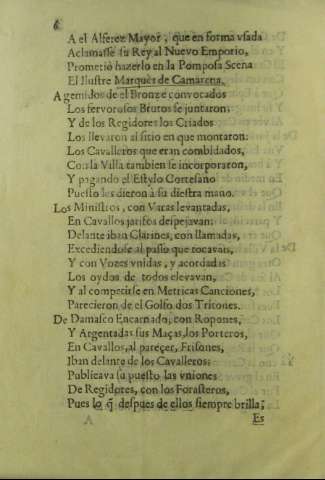 6
A el Alferez Mayor, que en forma vsada
Aclamasse su Rey al Nuevo Emporio,
Prometiò hazerlo en la Pomposa Scena
El Ilustre Marquès de Camarena.
A gemidos de el Bronze convocados
Los fervorosos Brutos se juntaron;
Y de los Regidores los Criados
Los llevaron al sitio en que montaron:
Los Cavalleros que eran combidados,
Con la Villa tambien se incorporaron,
Y pagando el Estylo Cortesano
Puesto les dieron à su diestra mano.
Los Ministros, con Varas levantadas,
En Cavallos jarifos despejavan;
Delante iban Clarines, con llamadas,
Excediendose al passo que tocavan,
Y con Vozes vnidas, y acordadas
Los oydos de todos elevavan,
Y al competirse en Metricas Canciones,
Parecieron de el Golfo dos Tritones.
De Damasco Encarnado, con Ropones,
Y Argentadas sus Maças, los Porteros,
En Cavallos, al pareçer, Frisones,
Iban delante de los Cavalleros;
Publicava su puesto las vniones
De Regidores, con los Forasteros,
Pues lo q̃ despues de ellos siempre brilla,
Es